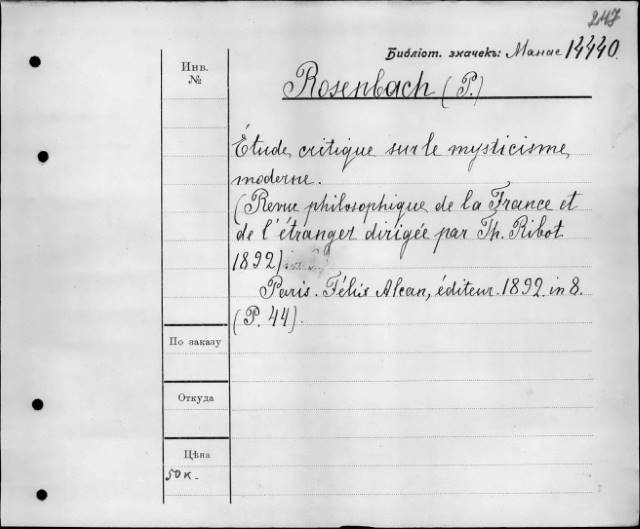 247
Библіот. значекъ: Манас 14440.
Инв.
№
Rosenbach (P.)
Étude critique sur le mysticisme
moderne.
(Revue philosophique de la France et
de l'étranger dirigée par Th. Ribot
1892).
Paris. Félix Alcan, éditeur. 1892. in 8.
(P. 44).
По заказу
Откуда
Цѣна
50 к.